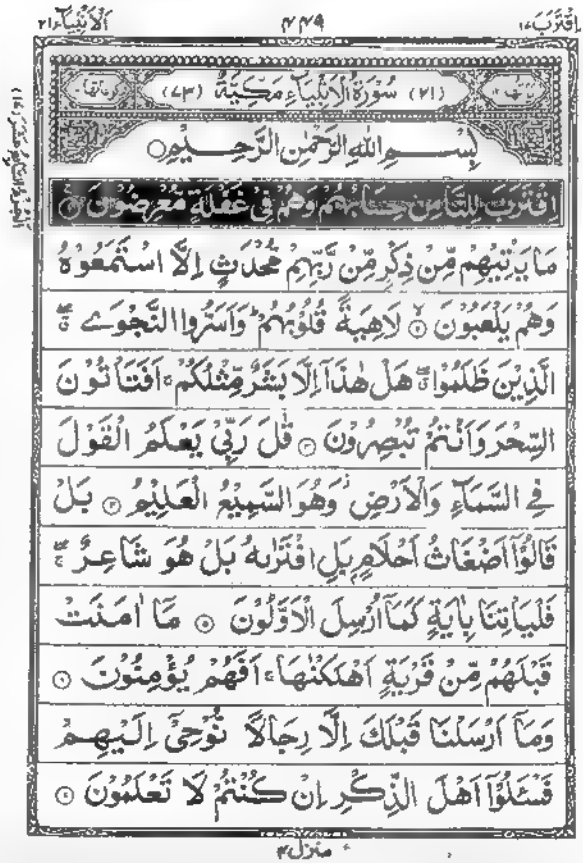 اِقْتَرَبَ ١٧ ٤٤٩ اَلْاَنْۢبِيَآء ٢١
(٢١) سُوْرَةُ الْاَنْۢبِيَآءِ مَكِّيَّةٌ (٧٣)
بِسْمِ اللّٰهِ الرَّحْمٰنِ الرَّحِيْمِ
اِقْتَرَبَ لِلنَّاسِ حِسَابُهُمْ وَهُمْ فِيْ غَفْلَةٍ مُّعْرِضُوْنَ ۝١
مَا يَاْتِيْهِمْ مِّنْ ذِكْرٍ مِّنْ رَّبِّهِمْ مُّحْدَثٍ اِلَّا اسْتَمَعُوْهُ
وَهُمْ يَلْعَبُوْنَ ۝٢ لَاهِيَةً قُلُوْبُهُمْ ؕ وَاَسَرُّوا النَّجْوَى ۖۗ
الَّذِيْنَ ظَلَمُوْا ۖۗ هَلْ هٰذَاۤ اِلَّا بَشَرٌ مِّثْلُكُمْ ۚ اَفَتَاْتُوْنَ
السِّحْرَ وَاَنْتُمْ تُبْصِرُوْنَ ۝٣ قٰلَ رَبِّيْ يَعْلَمُ الْقَوْلَ
فِي السَّمَآءِ وَالْاَرْضِ ؗ وَهُوَ السَّمِيْعُ الْعَلِيْمُ ۝٤ بَلْ
قَالُوْۤا اَضْغَاثُ اَحْلَامٍۭ بَلِ افْتَرٰىهُ بَلْ هُوَ شَاعِرٌ ۖۚ
فَلْيَاْتِنَا بِاٰيَةٍ كَمَاۤ اُرْسِلَ الْاَوَّلُوْنَ ۝٥ مَاۤ اٰمَنَتْ
قَبْلَهُمْ مِّنْ قَرْيَةٍ اَهْلَكْنٰهَا ۚ اَفَهُمْ يُؤْمِنُوْنَ ۝٦
وَمَاۤ اَرْسَلْنَا قَبْلَكَ اِلَّا رِجَالًا نُّوْحِيْۤ اِلَيْهِمْ
فَسْـَٔلُوْۤا اَهْلَ الذِّكْرِ اِنْ كُنْتُمْ لَا تَعْلَمُوْنَ ۝٧
منزل ٤